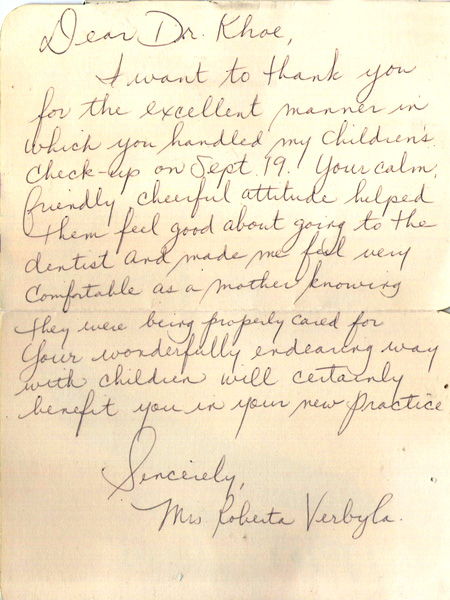 Dear Dr. Khoe,
I want to thank you
for the excellent manner in
which you handled my children's
check-up on Sept. 19. Your calm,
friendly, cheerful attitude helped
them feel good about going to the
dentist and made me feel very
comfortable as a mother knowing
they were being properly cared for
Your wonderfully endearing way
with children will certainly
benefit you in your new practice
Sincerely,
Mrs Roberta Verbyla.